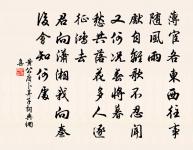 薄宦各東西往事
隨風雨
自離歌不忍聞
又何況春將暮
愁共落花多人逐
征鴻去
君向瀟湘我向秦
後會知何處
黃公度卜算子詞典網